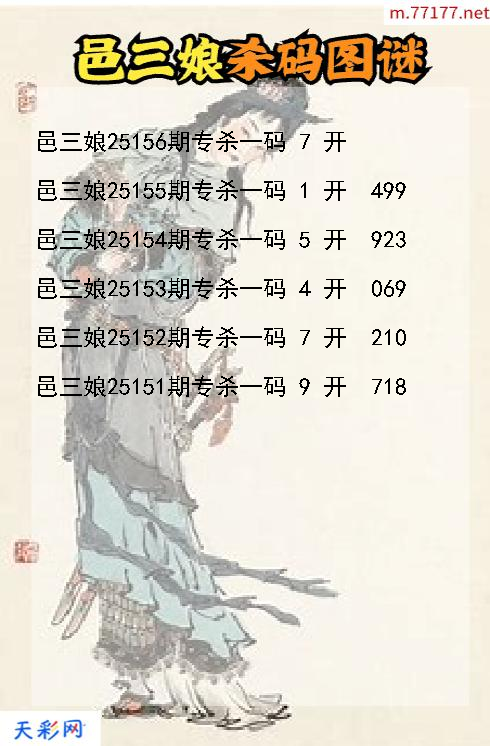 m.77177.net
邑三娘杀码图谜
邑三娘25156期专杀一码 7 开
邑三娘25155期专杀一码 1 开 499
邑三娘25154期专杀一码 5 开 923
邑三娘25153期专杀一码 4 开 069
邑三娘25152期专杀一码 7 开 210
邑三娘25151期专杀一码 9 开 718
天彩网